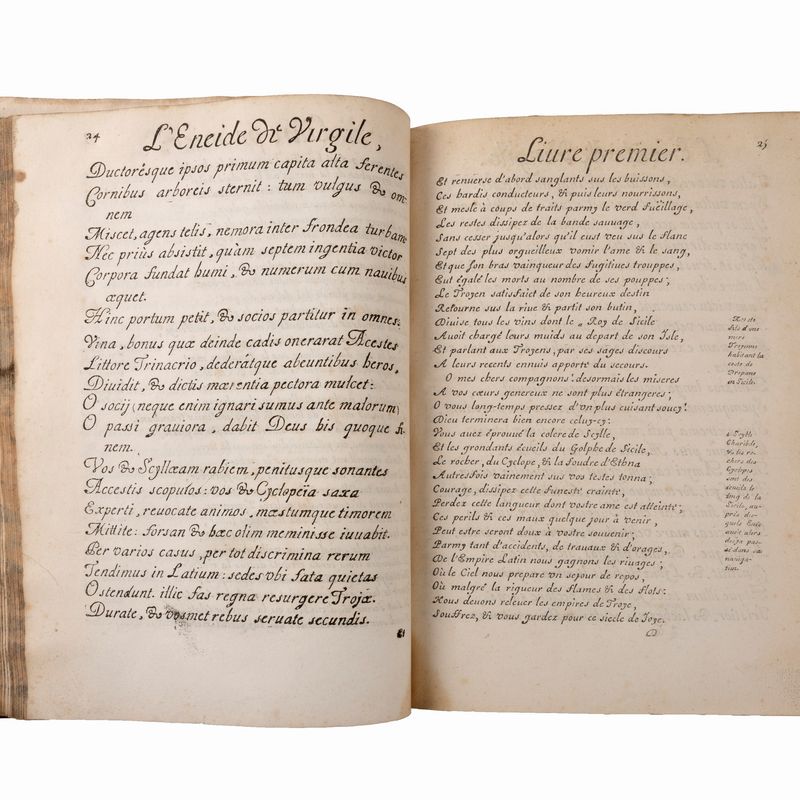 24
L'Eneide de Virgile,
Ductorésque ipsos primum capita alta ferentes
Cornibus arboreis sternit : tum vulgus & om-
nem
Miscet, agens telis, nemora inter frondea turbam
Nec priùs absistit, quàm septem ingentia victor
Corpora fundat humi, & numerum cum nauibus
æquet.
Hinc portum petit, & socios partitur in omnes:
Vina, bonus quæ deinde cadis onerarat Acestes
Littore Trinacrio, dederátque abeuntibus heros,
Diuidit, & dictis mærentia pectora mulcet:
O socij (neque enim ignari sumus ante malorum)
O passi grauiora, dabit Deus bis quoque fi-
nem.
Vos & Scyllæam rabiem, penitusque sonantes
Accestis scopulos: vos & Cyclopëia saxa
Experti, reuocate animos, mæstumque timorem
Mittite: forsan & hæc olim meminisse iuuabit.
Per varios casus, per tot discrimina rerum
Tendimus in Latium: sedes vbi fata quietas
Ostendunt. illic fas regna resurgere Trojæ.
Durate, & vosmet rebus seruate secundis.
Et
Liure premier.
25
Et renuerse d'abord sanglants sus les buissons,
Ces hardis conducteurs, & puis leurs nourrissons,
Et mesle à coups de traits parmy le verd fuëillage,
Les restes dissipez de la bande sauuage,
Sans cesser jusqu'alors qu'il eust veu sus le flanc
Sept des plus orgueilleux vomir l'ame & le sang,
Et que son bras vainqueur des fugitiues trouppes,
Eut égalé les morts au nombre de ses pouppes;
Le Troyen satisfaict de son heureux destin
Retourne sus la riue & partit son butin,
Diuise tous les vins dont le Roy de Sicile
Auoit chargé leurs muids au depart de son Isle,
Et parlant aux Troyens, par ses sages discours
A leurs recents ennuis apporte du secours.
O mes chers compagnons! desormais les miseres
A vos cœurs genereux ne sont plus étrangeres;
O vous long-temps pressez d'vn plus cuisant soucy!
Dieu terminera bien encore celuy-cy:
Vous auez éprouué la colere de Scylle,
Et les grondants écueils du Golphe de Sicile,
Le rocher, du Cyclope, & la foudre d'Ethna
Autresfois vainement sus vos testes tonna;
Courage, dissipez cette funeste crainte,
Perdez cette langueur dont vostre ame est atteinte;
Ces perils & ces maux quelque jour à venir,
Peut estre seront doux à vostre souuenir;
Parmy tant d'accidents, de trauaux & d'orages,
De l'Empire Latin nous gagnons les riuages;
Où le Ciel nous prepare vn sejour de repos,
Où malgré la rigueur des flames & des flots:
Nous deuons releuer les empires de Troye,
Souffrez, & vous gardez pour ce siecle de Joye.
D
fils d'une
mere
Troyenne
habitant la
coste de
Drepane
en Sicile.
Scylle
Charibde,
& les ro-
chers des
Cyclopes
sont des
écueils le
long de la
Sicile, au-
prés des-
quels Enée
auoit alors
deja pas-
sé dans sa
nauiga-
tion.